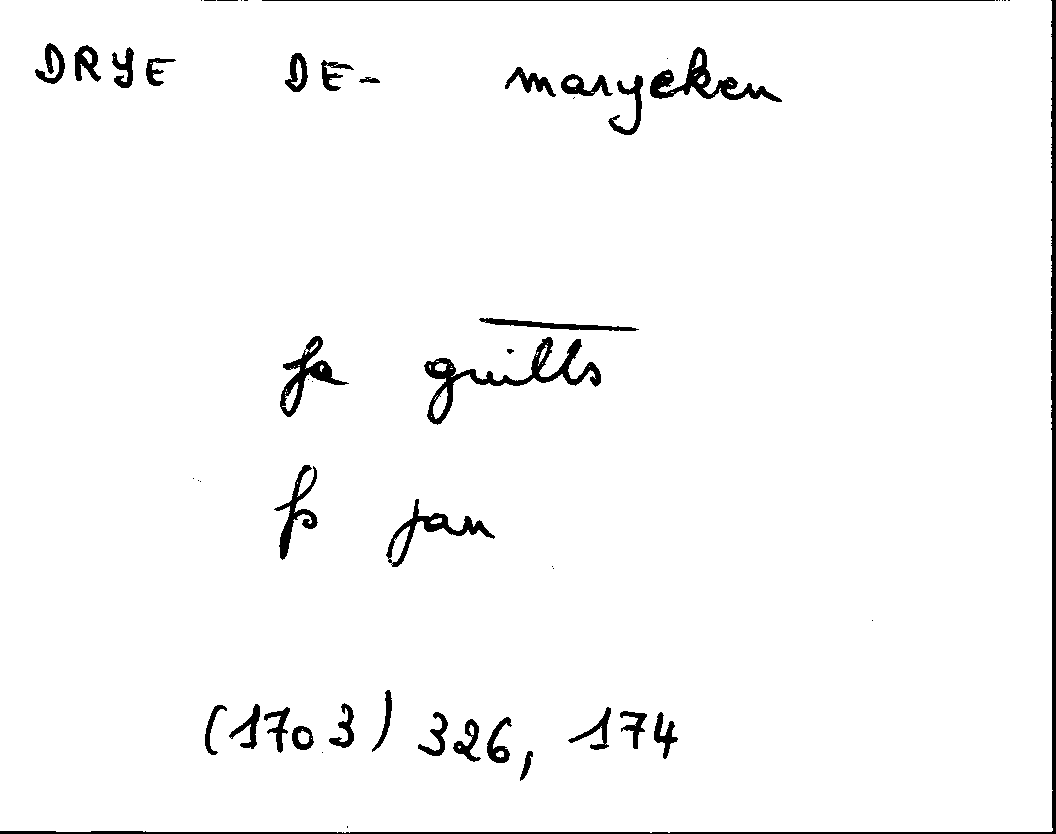 DRYE DE- maryeken
fa guills
fs jan
(1703) 326, 174